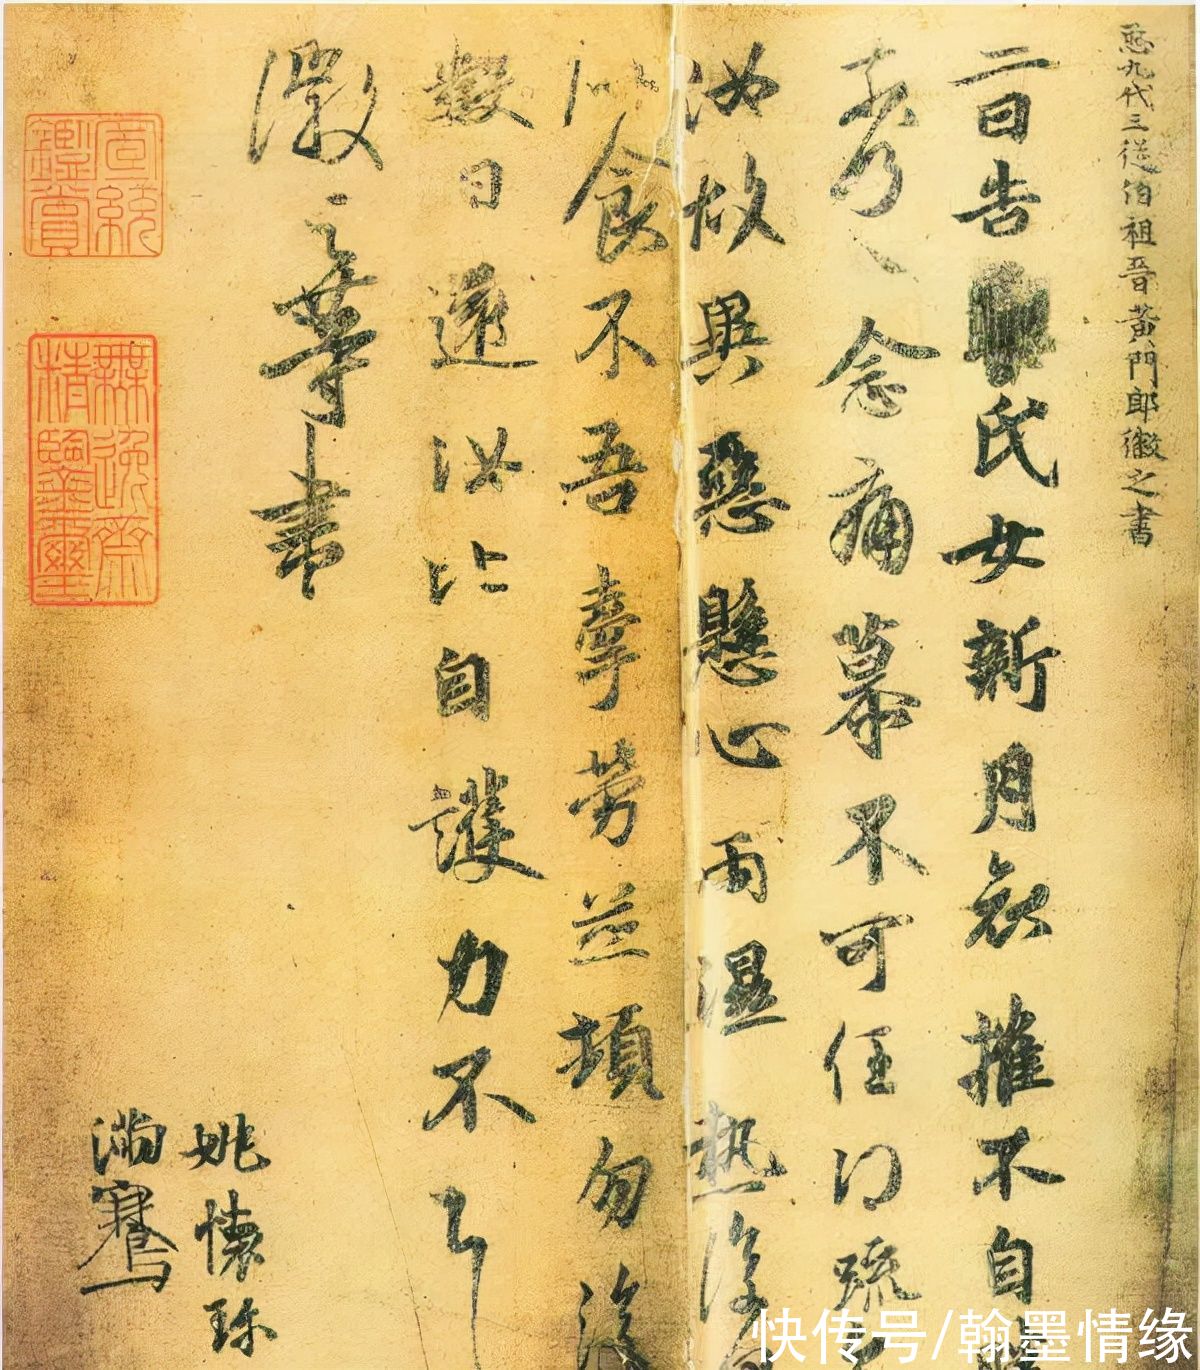 臣九代三從伯祖晉黃門郎徽之書
二日告氏女新月哀摧不自
奈何〻念痛慕不可任得疏
汝故異惡懸心雨濕熱復
食不吾牽勞並頓勿復
數日還汝比自護力不具
徽之等書
姚懷珍
滿騫
宣統
鑑賞
無逸齋
精鑑璽
快传号/翰墨情缘